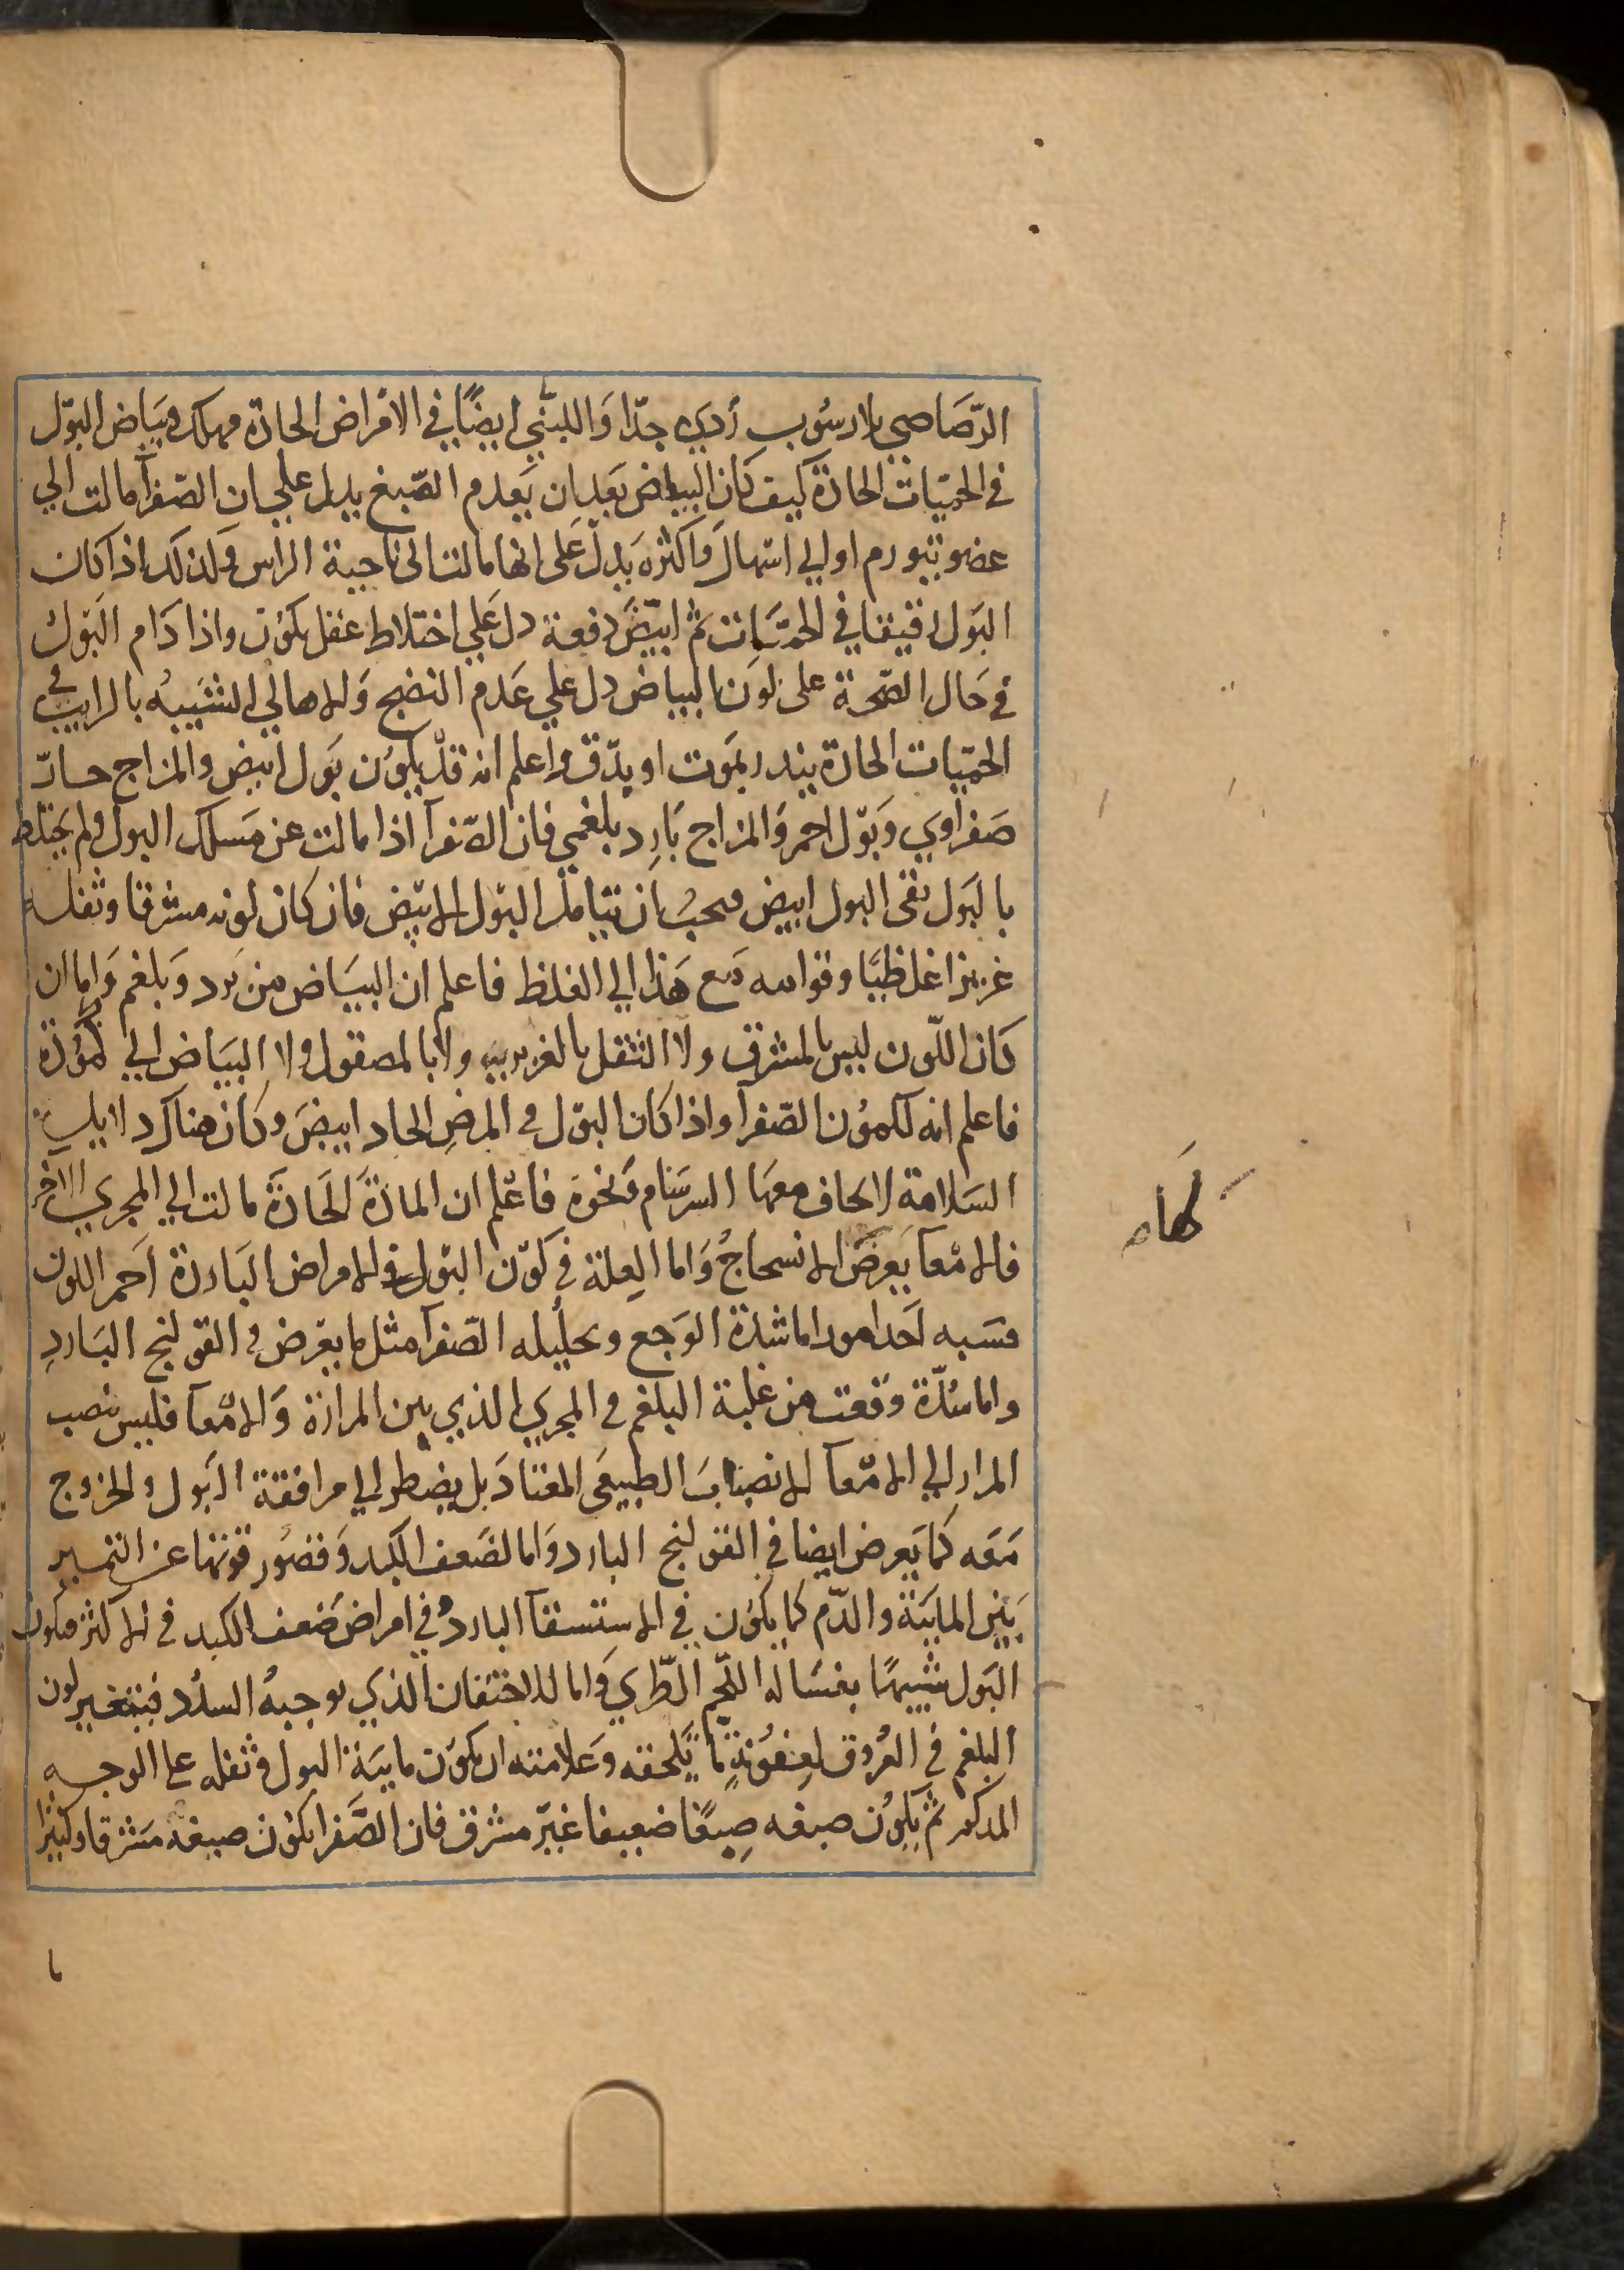 الرّصَاصي بلا رسُوب رَديء جدّا وَاللبَني ايضًا في الامراض الحادّة مهلك وبيَاض البَوْل
في الحميّات الحادّة كيف كان البياض بعد ان يَعدم الصّبغ يدل علي ان الصّفرآ مالت الي
عضو يتورم او الي اسهال وَاكثره يَدل عَلى انها مالت الى ناحية الراس وَلذلك اذا كان
البَول رقيقا في الحميَّات ثم ابيَضّ دفعة دل عَلي اختلاط عَقل يكوُن واذا دَام البَوْل
في حَال الصّحة على لَون البياض دل علي عَدم النضج وَالاهالي الشَبيه بالرايب في
الحمّيات الحادّة ينذر بموَت او بِدّق واعلم انه قدْ يكوُن بَول ابيض والمزاج حادّ
صَفراوي وَبَوْل احمر وَالمزاج بَارِد بلغمي فان الصّفرآ اذا مالت عن مَسلك البول ولم يختلط
بالبَول بقى البول ابيض فيجبُ ان يتامل البَوْل الابيَض فان كان لونه مشرقا وثفله
غريزا غلظيًا وقوامه مَع هَذا الي الغلظ فاعلم ان البيَاض من بَرد وَبلغم وَاما ان
كَان اللّون ليس بالمشرق ولا الثفل بالغزير ولا بالمصقول ولا البيَاض الي كموُدة
فاعلم انه لكموُن الصّفرآ واذا كان البَوْل في المرضِ الحاد ابيضَ وكَان هناك دلايل
السَلامة لا يخاف معهَا السرسَام وَنحوَه فاعْلم ان المادّةَ الحَادّةَ مالت الي المجري الاخر
فالامْعآ يَعرضَ الانسحاجُ وَاما العِلة في كَوْن البَوْل في الامراض البَاردَة اَحمر اللون
فسَببه اَحد امور اما شدة الوَجع وتحليله الصّفرآ مثل ما يعْرض في القولنج البَاردِ
واما سُدّة وقعت من غلبة البلغم في المجري الذي بين المرارة وَالامْعآ فليس ينصب
المرار الي الامْعآ الانصبابَ الطبيعَى المعتادَ بل يضطر الي مرافقة البَول والخروج
مَعَه كمَا يَعرض ايضا في القولنج البارد وَاما لضَعف الكبد وَقصوُر قوتها عن التمييز
بَيْن المايَية والدّم كما يكوُن في الاستسقآ البارد وفي امراض ضَعف الكبد في الاكثر فيكون
البَول شبيهًا بغسَالة اللحَّم الطّري وَاما للاحتقان الذي يوجبهُ السدُد فيتغير لون
البلغم في العُروق لعِفوُنةٍ مّا تَلحقه وَعلامته ان يكوُن مايَيّة البول وثفله على الوجه
المذكور ثم يكوُن صبغه صِبغًا ضعيفا غيرَ مشرق فان الصَّفرا يكوُن صبغه مَشرقا وكثيرًا
ما